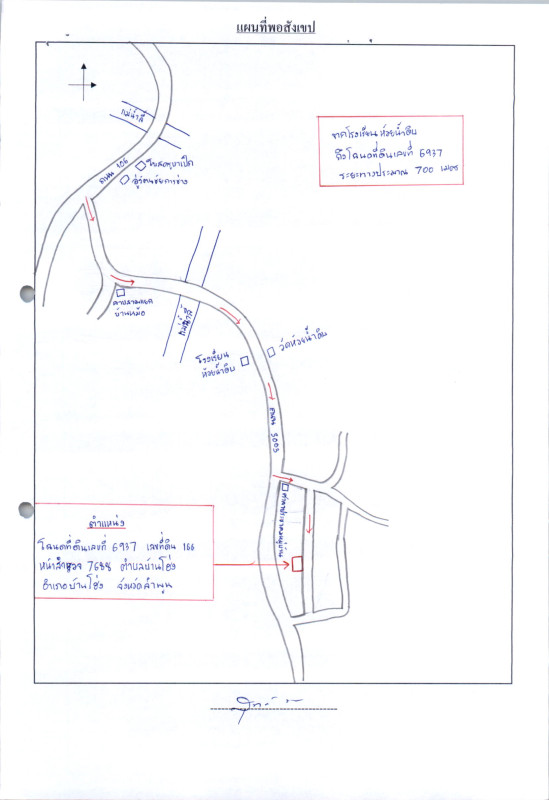 แผนที่พอสังเขป
แม่น้ำลี้
จากโรงเรียนห้วยน้ำดิบ
ถึงโฉนดที่ดินเลขที่ 6937
ระยะทางประมาณ 700 เมตร
ถนน 106
อู่รัตนชัยการช่าง
บ้านหล้อ
แม่น้ำลี้
โรงเรียน
ห้วยน้ำดิบ
วัดห้วยน้ำดิบ
ถนน 5005
ตำแหน่ง
โฉนดที่ดินเลขที่ 6937 เลขที่ดิน 166
หน้าสำรวจ 7688 ตำบลบ้านโฮ่ง
อำเภอบ้านโฮ่ง จังหวัดลำพูน